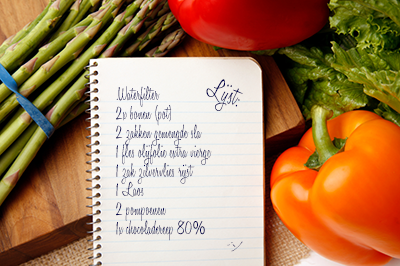 Lijst:
Waterfilter
2x bonen (pot)
2 zakken gemengde sla
1 fles olijfolie extra vierge
1 zak zilvervlies rijst
1 Laos
2 pompoenen
1x chocoladereep 80%
:-)